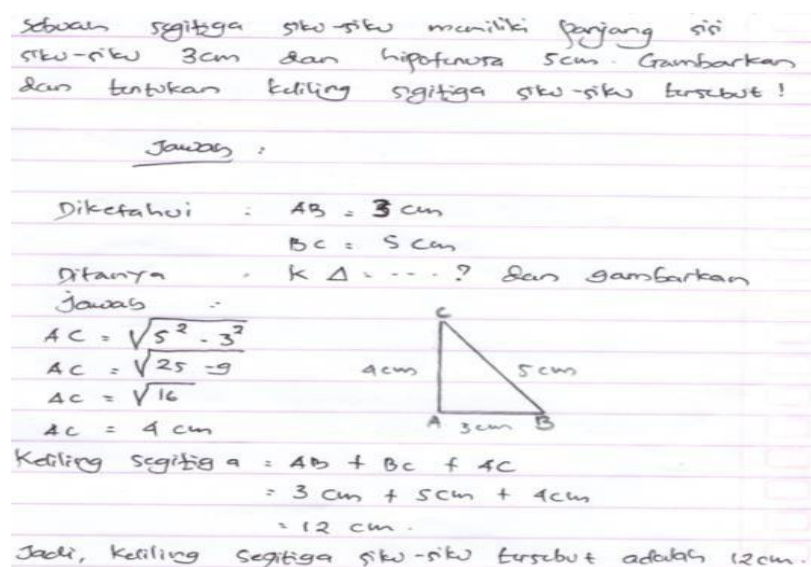 sebuah segitiga siku-siku memiliki panjang sisi
siku-siku 3cm dan hipotenusa 5cm. Gambarkan
dan tentukan keliling segitiga siku-siku tersebut!
Jawab :
Diketahui : AB = 3 cm
BC = 5 cm
Ditanya : K Δ = ....? dan gambarkan
Jawab :
AC = √5² - 3²
AC = √25 - 9
AC = √16
AC = 4 cm
C
4cm 5cm
A 3cm B
Keliling segitiga = AB + BC + AC
= 3 cm + 5cm + 4cm
= 12 cm.
Jadi, keliling segitiga siku-siku tersebut adalah 12cm.